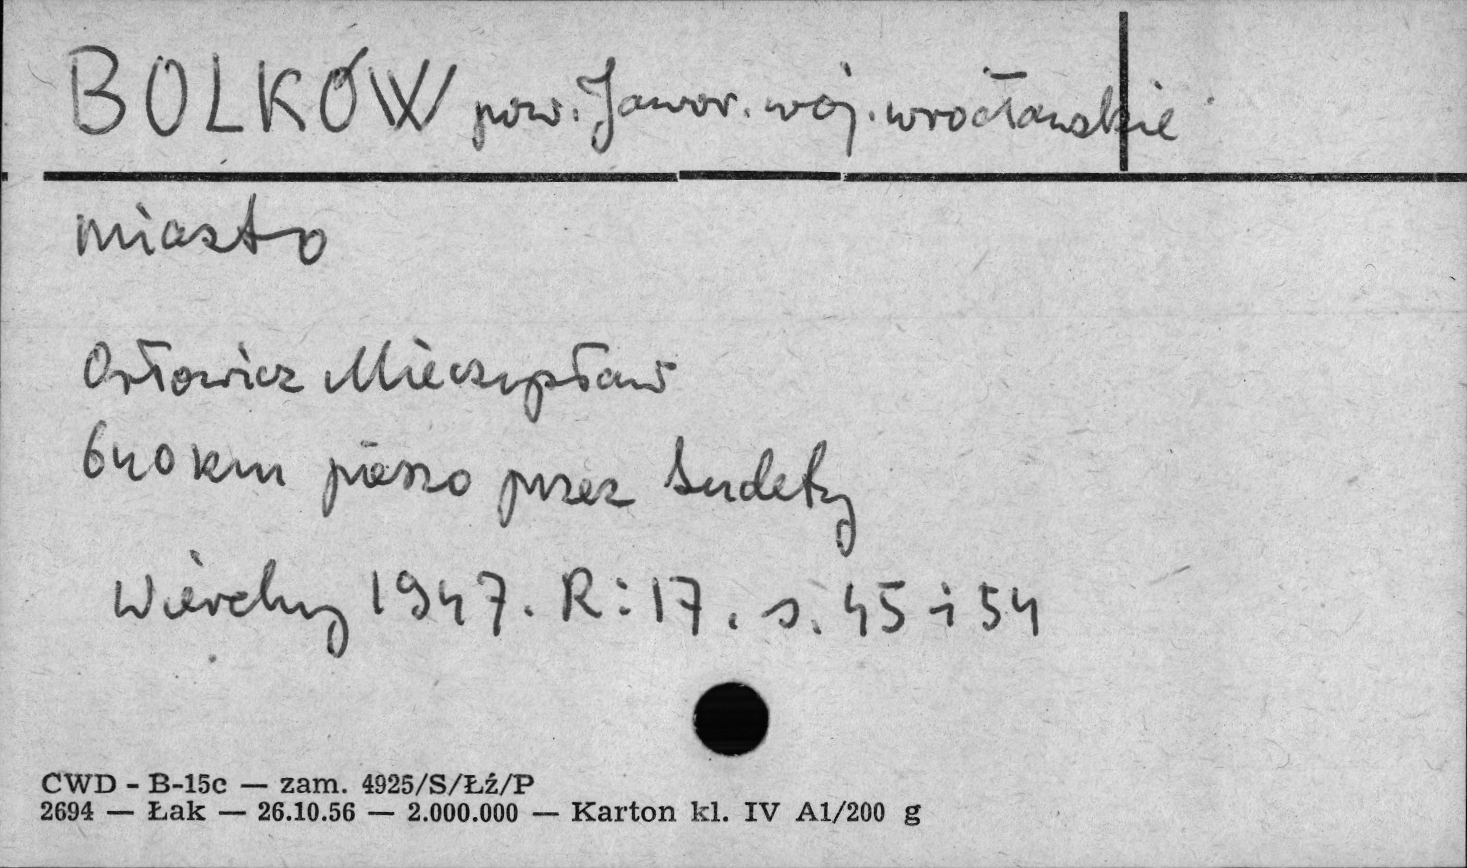 BOLKÓW pow. Jawor. woj. wrocławskie
miasto
Orłowicz Mieczysław
640 km pieszo przez Sudety
Wierchy 1947. R: 17. s. 45 i 54
CWD - B-15c — zam. 4925/S/Łź/P
2694 — Łak — 26.10.56 — 2.000.000 — Karton kl. IV A1/200 g